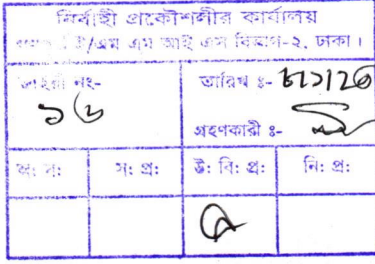 নির্বাহী প্রকৌশলীর কার্যালয়
/এম এম আই এস বিভাগ-২, ঢাকা।
ডাইরী নং-
১৬
তারিখ ঃ- ৮/১/26
গ্রহণকারী ঃ-
স: প্র: উ: বি: প্র: নি: প্র: